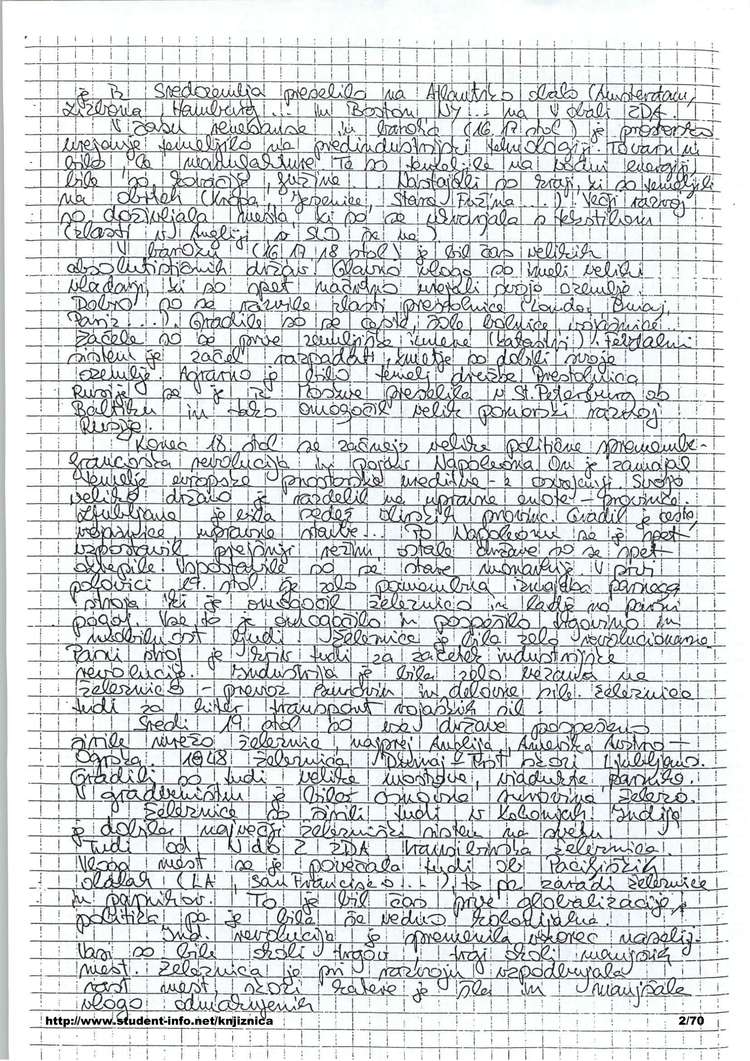 je iz Sredozemlja preselilo na Atlantsko obalo (Amsterdam,
Lizbona, Hamburg ... in Boston, NY ... na V obali ZDA.
V času renesanse in baroka (16, 17 stol) je prostorsko
urejanje temeljilo na predindustrijski tehnologiji. Tovarn ni
bilo, le manufakture. To so temeljile na vodni energiji,
bile so kovačije, fužine. Nastajali so kraji, ki so temeljili
na obrteh (Kropa, Jesenice, Stara Fužina ...). Večji razvoj
so doživljala mesta, ki so se ukvarjala s tekstilom
(zlasti v Angliji, v SLO še ne)
V baroku (16, 17, 18 stol) je bil čas velikih
absolutističnih držav. Glavno vlogo so imeli veliki
vladarji, ki so spet načrtno urejali svoje ozemlje.
Dobro so se razvile zlasti prestolnice (London, Dunaj,
Pariz ...). Gradile so se ceste, šole, bolnice, vojašnice...
Začele so se prve zemljiške izmere (katastri). Fevdalni
sistem je začel razpadati, kmetje so dobili svoje
ozemlje. Agrarno je bilo temelj družbe. Prestolnica
Rusije se je iz Moskve preselila v St. Petersburg ob
Baltiku in tako omogočil velik pomorski razvoj
Rusije.
Konec 18. stol se začnejo velike politične spremembe -
francoska revolucija in pohod Napoleona. On je zamajal
temelje evropske prostorske ureditve - z osvajanji. Svojo
veliko državo je razdelil na upravne enote - province.
Ljubljana je bila sedež Ilirskih provinc. Gradil je ceste,
vojašnice, upravne stavbe... Po Napoleonu se je spet
vzpostavil prejšnji režim, ostale države so se spet
okrepile. Vzpostavile so se stare monarhije. V prvi
polovici 19. stol. je zelo pomembna iznajdba parnega
stroja, ki je omogočil železnico in ladje na parni
pogon. Vse to je omogočilo in pospešilo trgovino in
mobilnost ljudi. Železnice je bila zelo revolucionarna.
Parni stroj je kriv tudi za začetek industrijske
revolucije. Industrija je bila zelo vezana na
železnico - prevoz surovin in delovne sile. Železnica
tudi za hiter transport vojaških sil.
Sredi 19. stol so vse države pospešeno
širile mrežo železnic, najprej Anglija, Amerika, Avstro-
Ogrska. 1848 železnica Dunaj - Trst skozi Ljubljano.
Gradili so tudi velike mostove, viadukte, parnike.
V gradbeništvu je bila osnovna surovina železo.
Železnice so širili tudi v kolonijah. Indija
je dobila največji železniški sistem na svetu.
Tudi od V do Z ZDA transpilenska železnica.
Vloga mest se je povečala tudi ob Pacifiških
obalah (LA, San Francisco...), to pa zaradi železnice
in parnikov. To je bil čas prve globalizacije,
politika pa je bila še vedno kolonialna.
Ind. revolucija je spremenila vzorec naselij.
Vasi so bile okoli trgov, trgi okoli manjših
mest. Železnica je pri razvoju vzpodbujala
rast mest, skozi katere je šla in manjšala
vlogo odmaknjenih
http://www.student-info.net/knjiznica 2/70